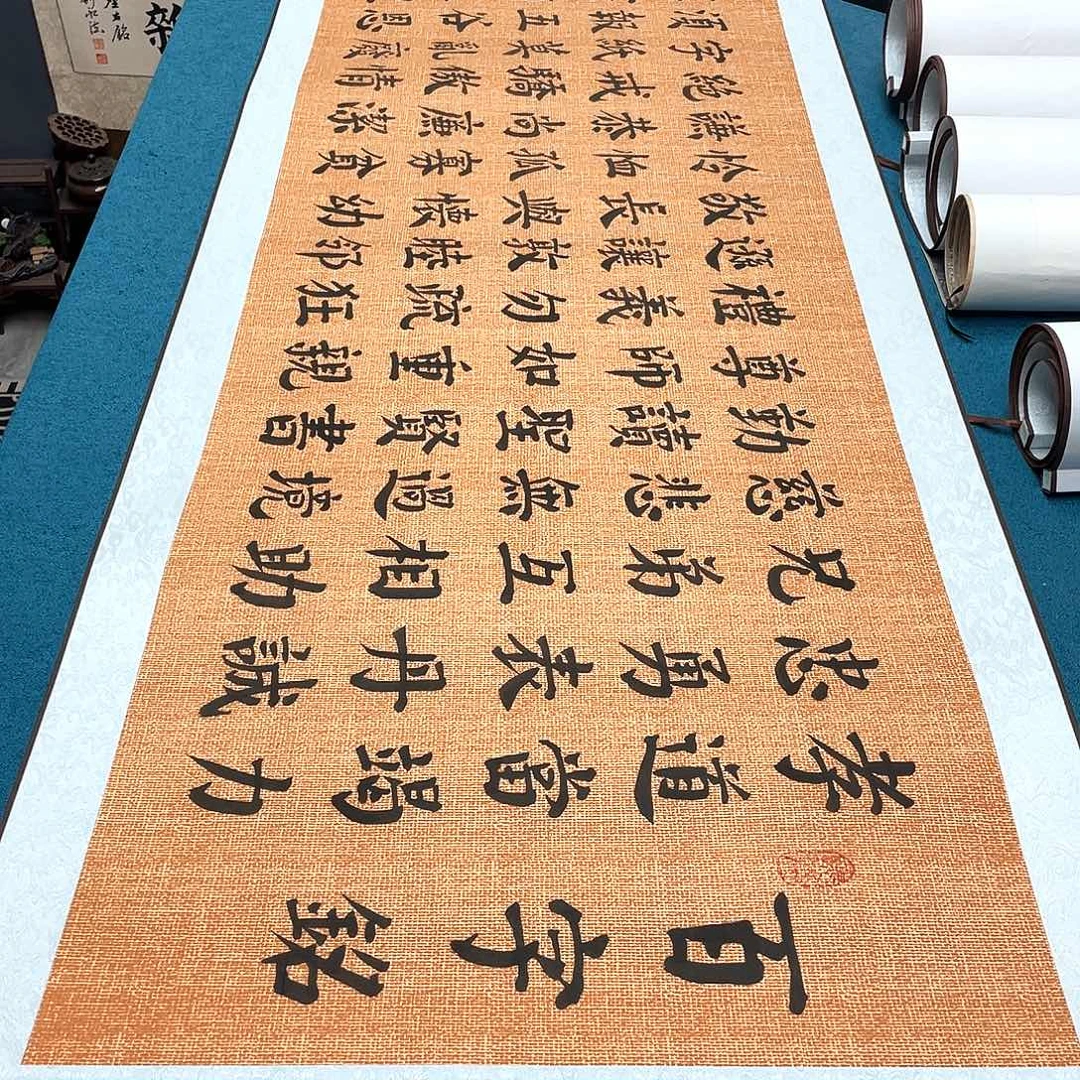 百字銘
孝道當竭力
忠勇表丹誠
兄弟互相助
慈悲無過境
勤讀聖賢書
尊師如重親
禮義勿疏狂
遜讓敦睦邻
敬長與懷幼
怜恤孤寡貧
謙恭尚廉潔
絕戒驕傲情
字紙莫亂廢
須報五谷恩